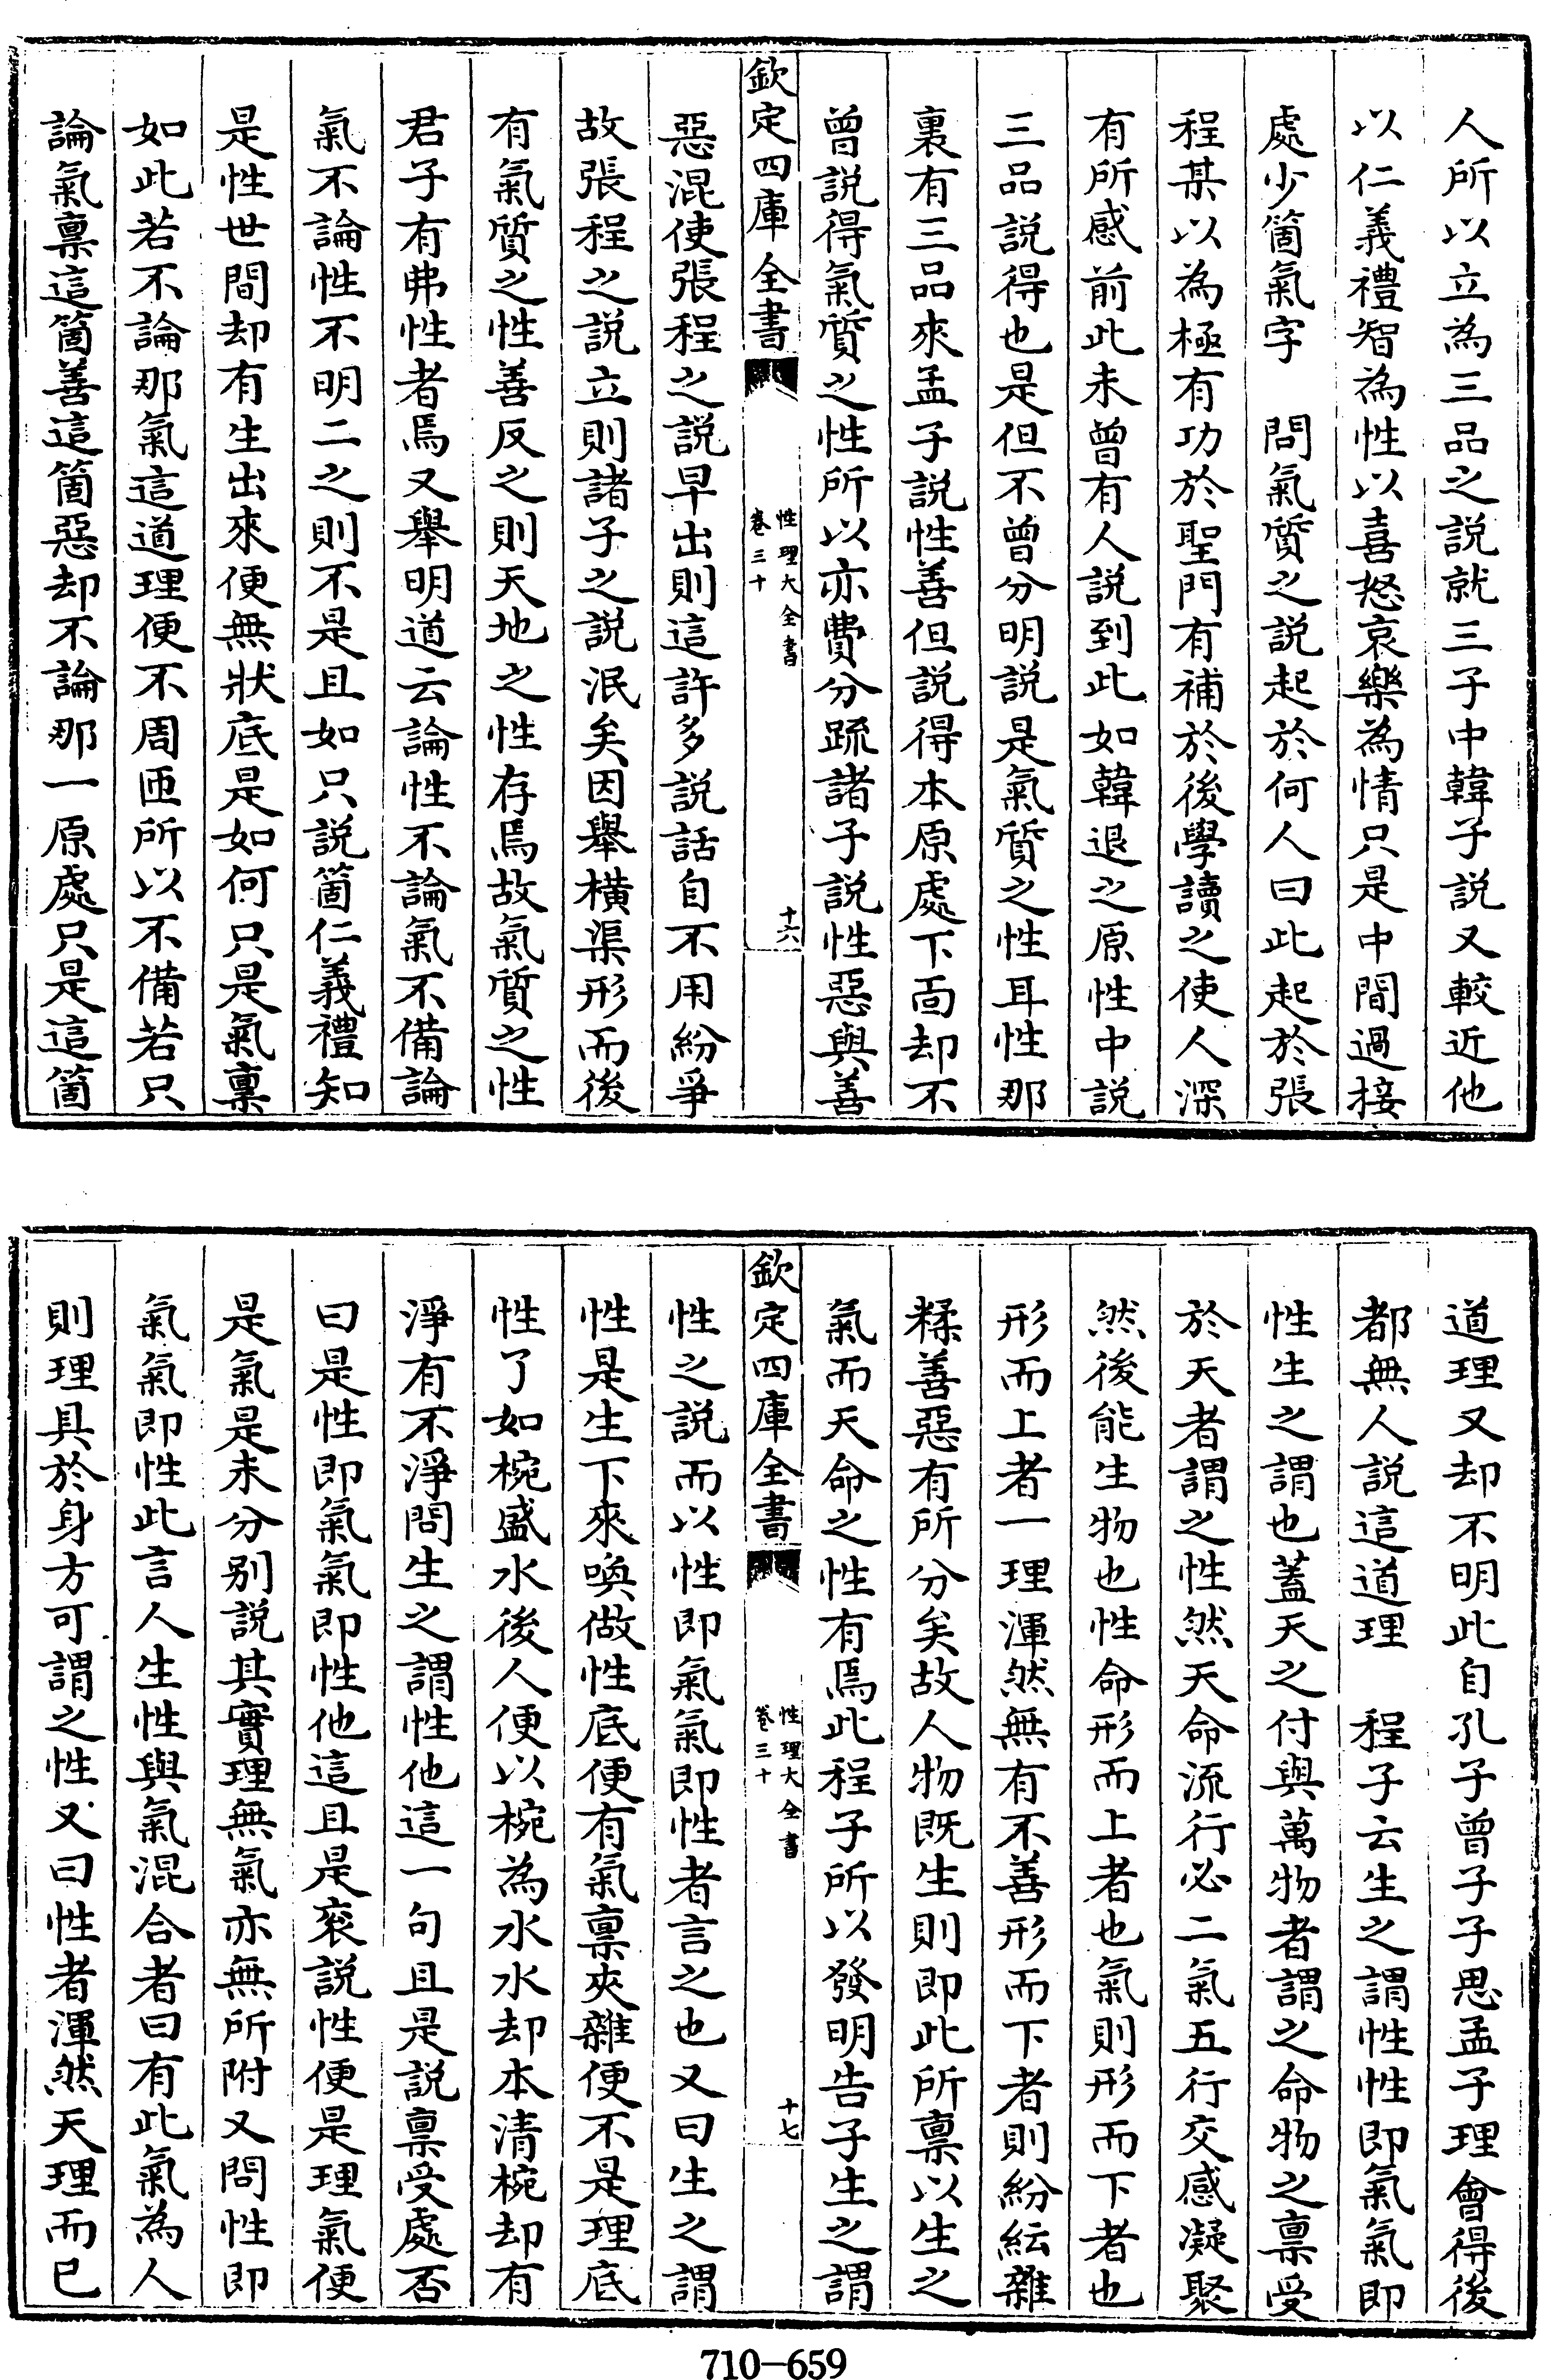 人所以立為三品之說就三子中韓子說又較近他
以仁義禮智為性以喜怒哀樂為情只是中間過接
處少箇氣字　問氣質之說起於何人曰此起於張
程某以為極有功於聖門有補於後學讀之使人深
有所感前此未曾有人說到此如韓退之原性中說
三品說得也是但不曾分明說是氣質之性耳性那
裏有三品來孟子說性善但說得本原處下面却不
曾說得氣質之性所以亦費分疏諸子說性惡與善
欽定四庫全書
性理大全書
卷三十
十六
惡混使張程之說早出則這許多說話自不用紛爭
故張程之說立則諸子之說泯矣因舉橫渠形而後
有氣質之性善反之則天地之性存焉故氣質之性
君子有弗性者焉又舉明道云論性不論氣不備論
氣不論性不明二之則不是且如只說箇仁義禮知
是性世間却有生出來便無狀底是如何只是氣稟
如此若不論那氣這道理便不周匝所以不備若只
論氣稟這箇善這箇惡却不論那一原處只是這箇
道理又却不明此自孔子曾子子思孟子理會得後
都無人說這道理　程子云生之謂性性即氣氣即
性生之謂也蓋天之付與萬物者謂之命物之稟受
於天者謂之性然天命流行必二氣五行交感凝聚
然後能生物也性命形而上者也氣則形而下者也
形而上者一理渾然無有不善形而下者則紛紜雜
糅善惡有所分矣故人物既生則即此所稟以生之
氣而天命之性有焉此程子所以發明告子生之謂
欽定四庫全書
性理大全書
卷三十
十七
性之說而以性即氣氣即性者言之也又曰生之謂
性是生下來喚做性底便有氣稟夾雜便不是理底
性了如椀盛水後人便以椀為水水却本清椀却有
淨有不淨問生之謂性他這一句且是說稟受處否
曰是性即氣氣即性他這且是衮說性便是理氣便
是氣是未分别說其實理無氣亦無所附又問性即
氣氣即性此言人生性與氣混合者曰有此氣為人
則理具於身方可謂之性又曰性者渾然天理而已
710-659